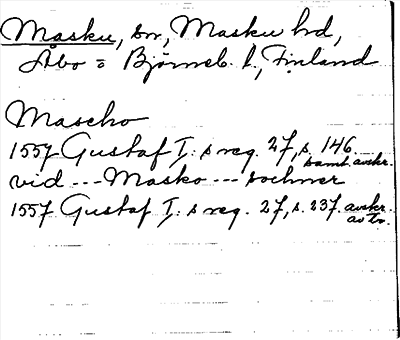 Masku, sn, Masku hd,
Åbo o Björneb. l., Finland
Mascho
1557 Gustaf I:s reg. 27, s. 146.
samt. avskr.
vid --- Masko --- sochner
1557 Gustaf I:s reg. 27, s. 237. avskr.
av to.